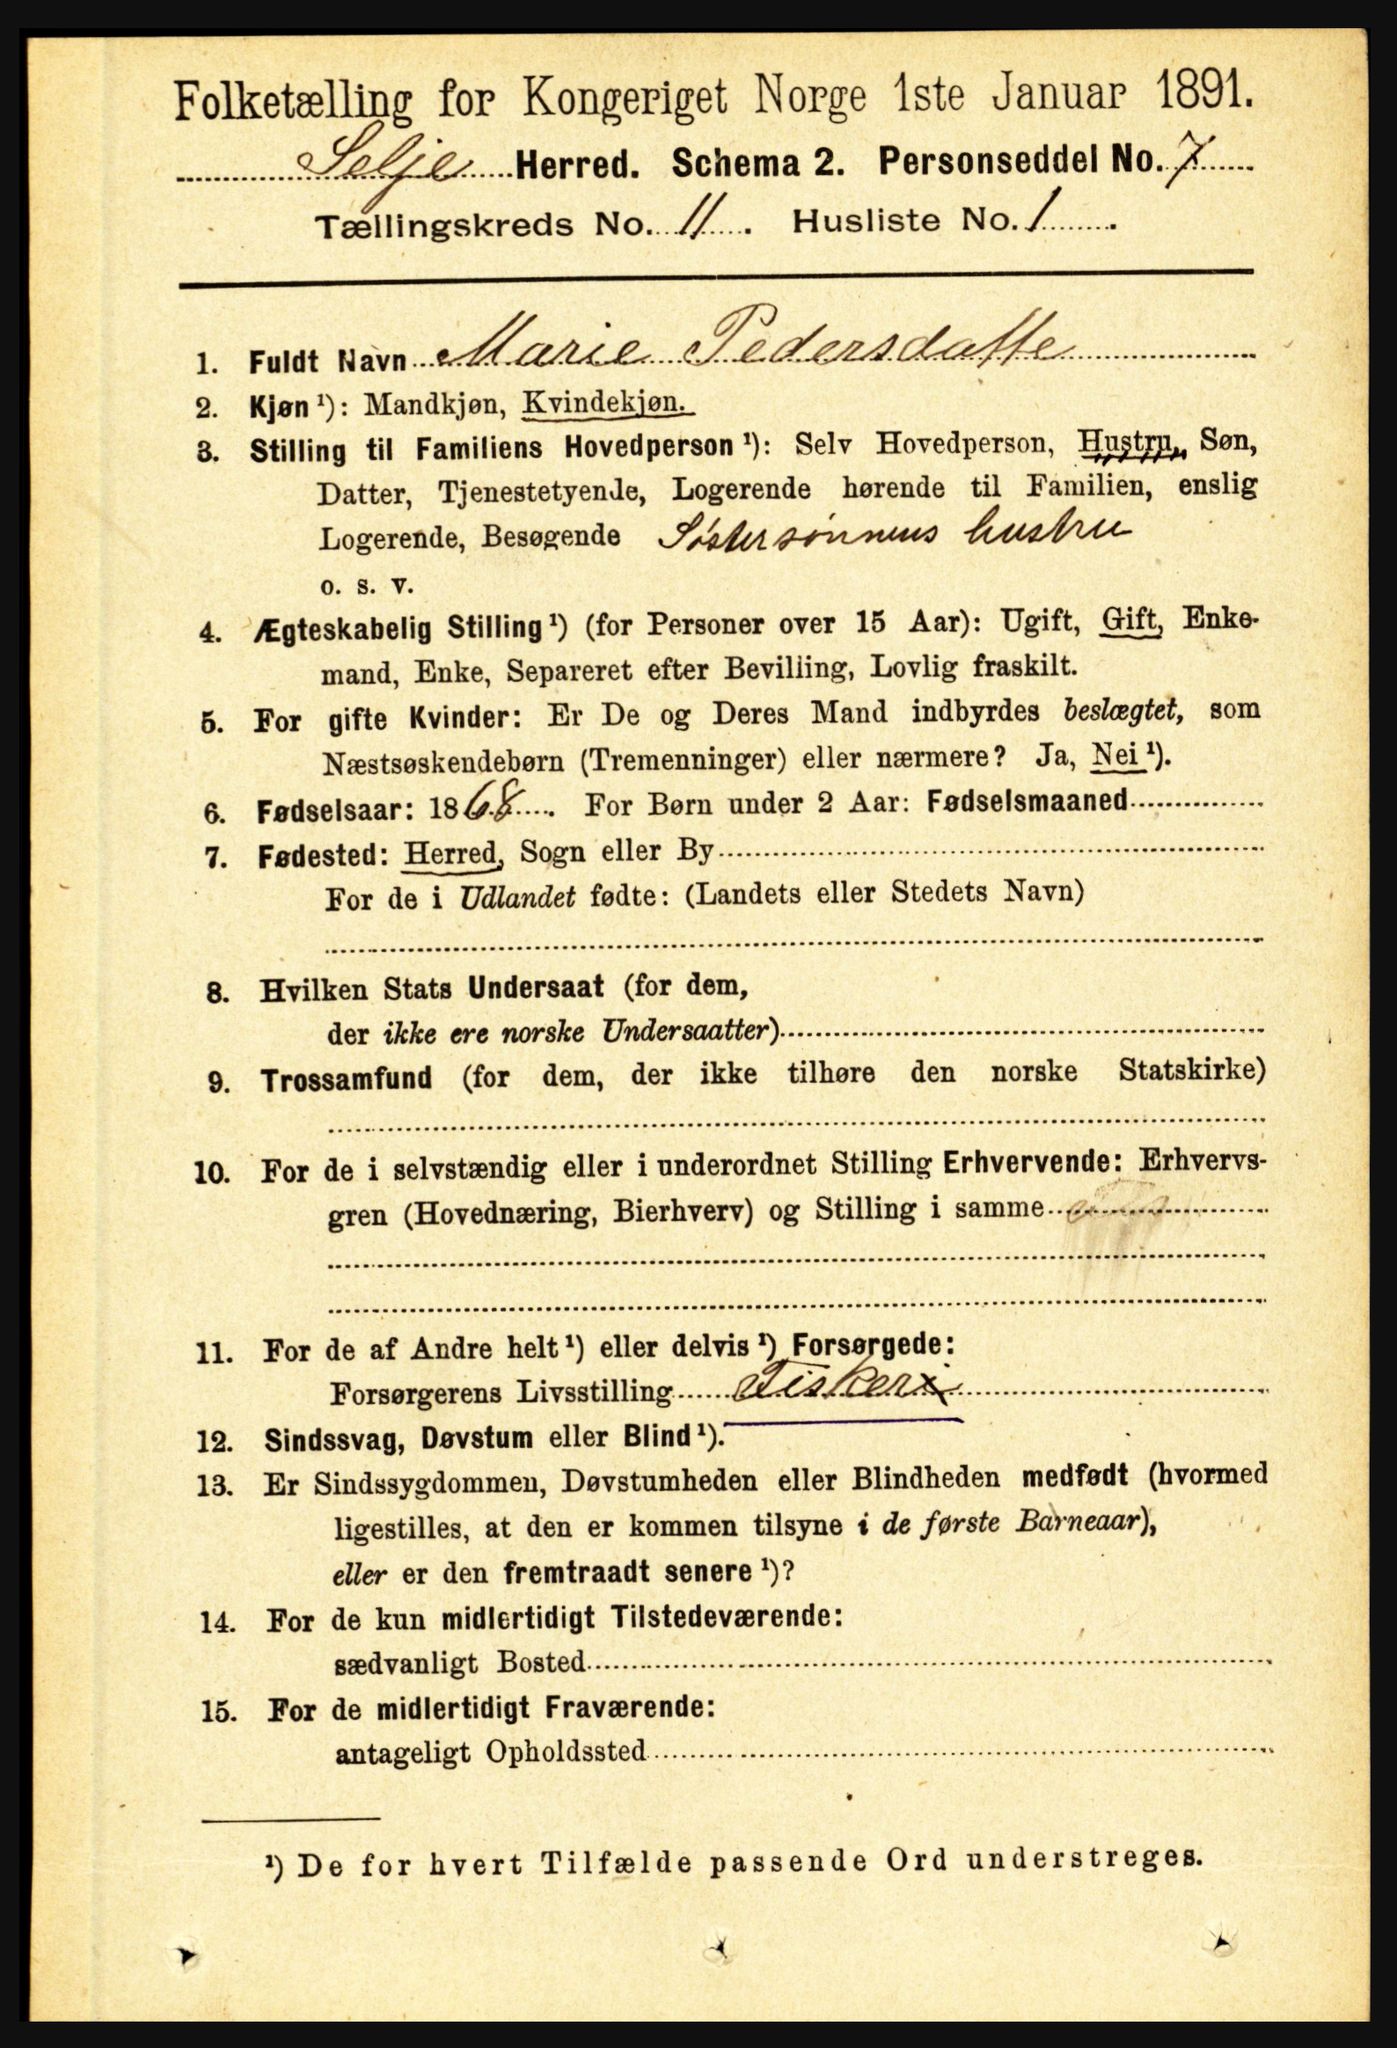 Folketælling for Kongeriget Norge 1ste Januar 1891.
Selje Herred. Schema 2. Personseddel No. 7
Tællingskreds No. 11. Husliste No. 1.
1. Fuldt Navn Marie Pedersdatte
2. Kjøn ¹): Mandkjøn, Kvindekjøn.
3. Stilling til Familiens Hovedperson ¹): Selv Hovedperson, Hustru, Søn,
Datter, Tjenestetyende, Logerende hørende til Familien, enslig
Logerende, Besøgende Søstersønnens hustru
o. s. v.
4. Ægteskabelig Stilling ¹) (for Personer over 15 Aar): Ugift, Gift, Enke-
mand, Enke, Separeret efter Bevilling, Lovlig fraskilt.
5. For gifte Kvinder: Er De og Deres Mand indbyrdes beslægtet, som
Næstsøskendebørn (Tremenninger) eller nærmere? Ja, Nei ¹).
6. Fødselsaar: 1868. For Børn under 2 Aar: Fødselsmaaned
7. Fødested: Herred, Sogn eller By
For de i Udlandet fødte: (Landets eller Stedets Navn)
8. Hvilken Stats Undersaat (for dem,
der ikke ere norske Undersaatter)
9. Trossamfund (for dem, der ikke tilhøre den norske Statskirke)
10. For de i selvstændig eller i underordnet Stilling Erhvervende: Erhvervs-
gren (Hovednæring, Bierhverv) og Stilling i samme
11. For de af Andre helt ¹) eller delvis ¹) Forsørgede:
Forsørgerens Livsstilling Fisker
12. Sindssvag, Døvstum eller Blind ¹).
13. Er Sindssygdommen, Døvstumheden eller Blindheden medfødt (hvormed
ligestilles, at den er kommen tilsyne i de første Barneaar),
eller er den fremtraadt senere ¹)?
14. For de kun midlertidigt Tilstedeværende:
sædvanligt Bosted
15. For de midlertidigt Fraværende:
antageligt Opholdssted
¹) De for hvert Tilfælde passende Ord understreges.